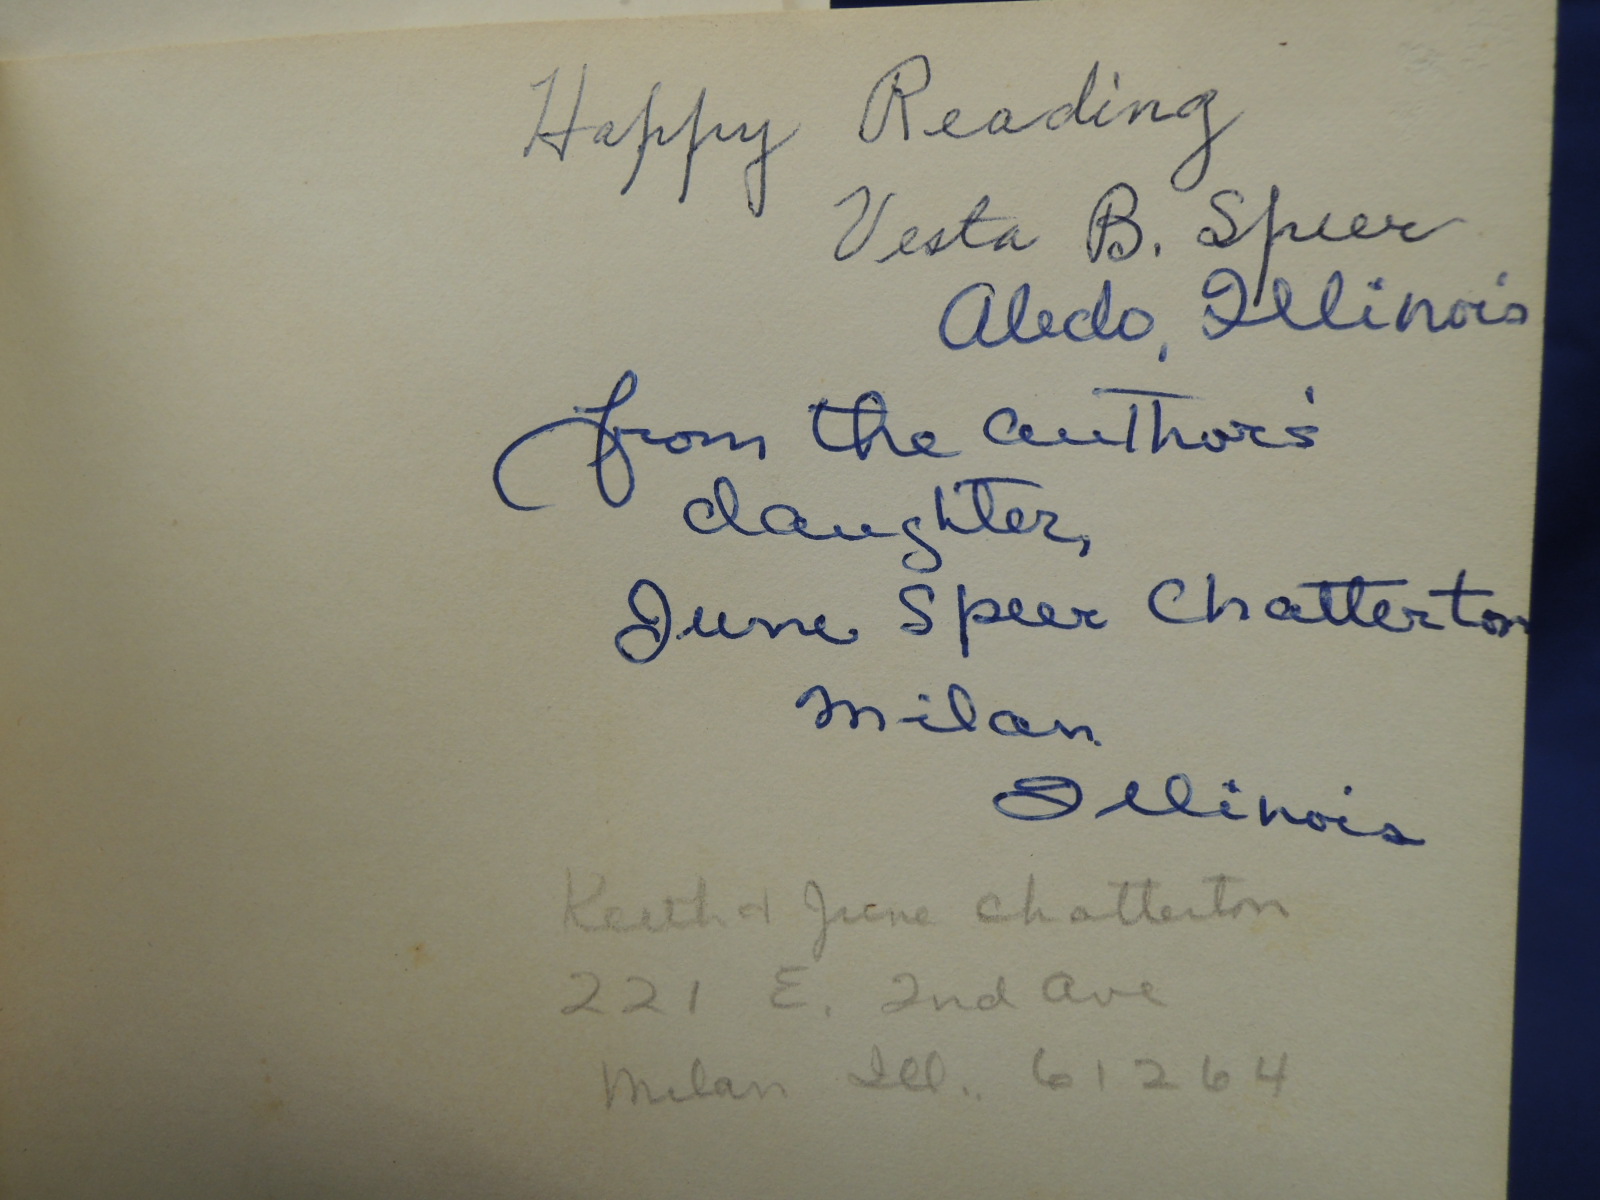 Happy Reading
Vesta B. Speer
Aledo, Illinois
from the author's
daughter,
June Speer Chatterton
Milan
Illinois
Keith & June Chatterton
221 E. 2nd Ave
Milan Ill. 61264